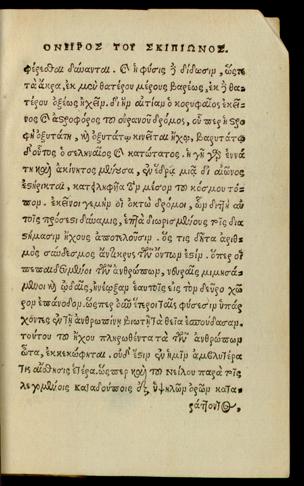 ΟΝΕΙΡΟΣ ΤΟΥ ΣΚΙΠΙΩΝΟΣ.
φέρεσθαι δύνανται. καὶ ἡ φύσις δίδωσιν, ὥστε
τὰ ἄκρα, ἐκ μὲν θατέρου μέρους βαρέως, ἐκ δὲ θα-
τέρου ὀξέως ἠχεῖν. δι' ἣν αἰτίαν ὁ κορυφαῖος ἐκεῖ-
νος καὶ ἀστροφόρος τοῦ οὐρανοῦ δρόμος, οὗ περ ἡ στρο-
φὴ ὀξυτάτη, ὀξυτάτῳ κινεῖται ἤχῳ, βαρυτάτῳ
δ' οὗτος ὁ σεληναῖος καὶ κατώτατος. ἡ γῆ ἐννά-
τη καὶ ἀκίνητος μένουσα, ἐν ἕδρᾳ μιᾷ δι' αἰῶνος
ἐστήρικται, κατειληφυῖα τὸν μέσον τοῦ κόσμου τό-
πον. ἐκεῖνοι γε μὴν οἱ ὀκτὼ δρόμοι, ὧν δυεῖν αὐ-
τοῖς πρόσεστι δύναμις, ἑπτὰ διωρισμένους τοῖς δια-
στήμασιν ἤχους ἀποτελοῦσιν. ὅς τις δῆτα ἀριθ-
μὸς σύνδεσμος ἁπάντων ἐστιν. ὅπερ οἱ
πεπαιδευμένοι τῶν ἀνθρώπων, νευραῖς μιμησά-
μενοι καὶ ᾠδαῖς, ἤνοιξαν ἑαυτοῖς εἰς τὸν δεῦρο χῶ
ρον ἐπάνοδον. ὥσπερ οἱ ταῖς φύσεσιν ὑπάρ
χοντες ἐν τῇ ἀνθρωπίνῃ βιωτῇ τὰ θεῖα ἐσπούδασαν.
τούτου τοῦ ἤχου πλησωθέντα τὰ τῶν ἀνθρώπων
ὦτα, ἐκκεκώφηται. οὐδ' ἔστιν ἐν ἡμῖν ἀμβλυτέρα
τις αἴσθησις ἑτέρα. ὥσπερ καὶ τοῦ Νείλου παρὰ τοῖς
λεγομένοις καταδούποις ἐξ ὑψηλῶν ὀρῶν κατα-
ράττοντος,